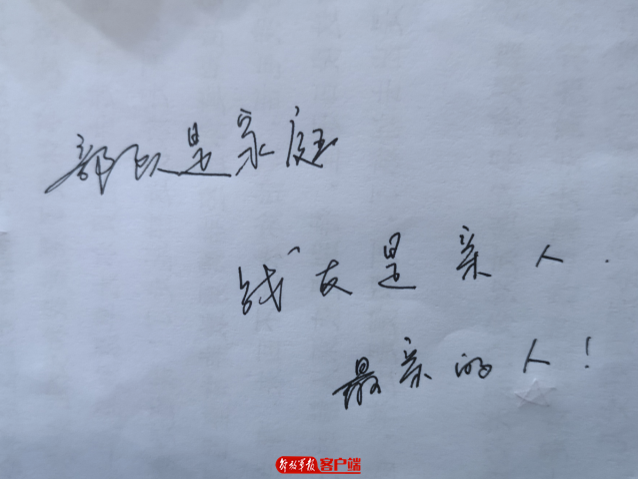 部队是家庭
战友是亲人.
最亲的人!
解放军报客户端